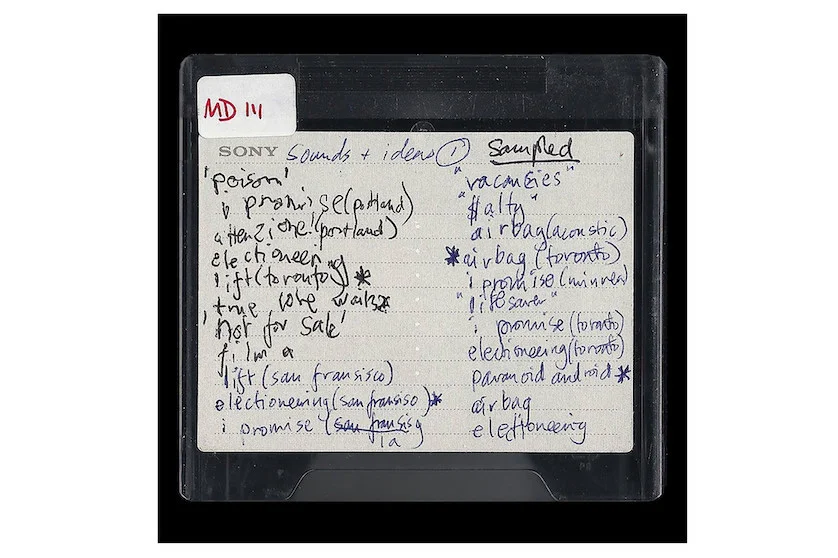 MD 111
SONY sounds + ideas ① Sampled
'poison'
i promise (portland)
attenzione! (portland)
electioneering
lift (toronto) *
true love waits*
'not for sale'
film a
lift (san fransisco)
electioneering (sanfransiso)*
i promise (san fransisco
la)
"vacancies"
"salty"
airbag (acoustic)
*airbag (toronto)
i promise (minnea)
"lifesaver"
i promise (toronto)
electioneering (toronto)
paranoid android*
airbag
electioneering